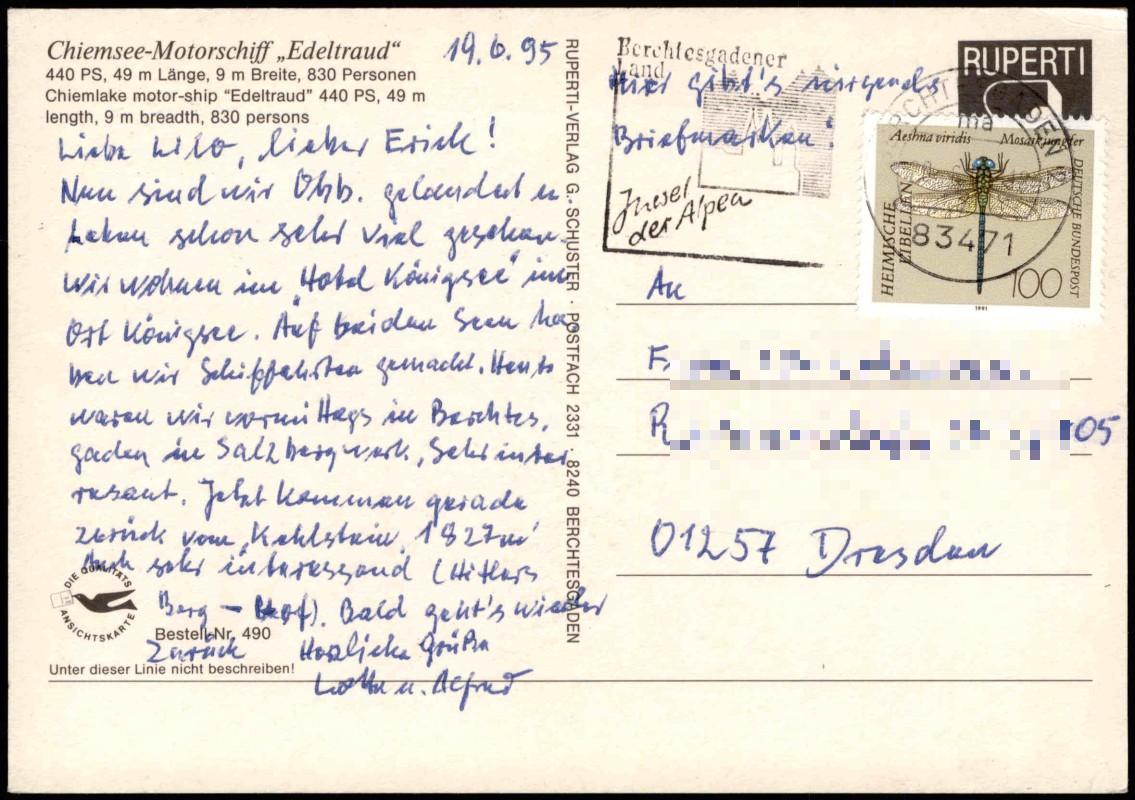 Chiemsee-Motorschiff „Edeltraud“
440 PS, 49 m Länge, 9 m Breite, 830 Personen
Chiemlake motor-ship “Edeltraud” 440 PS, 49 m
length, 9 m breadth, 830 persons
19.6.95
Liebe Lilo, lieber Erich!
Nun sind wir Obb. gelandet u
haben schon sehr viel gesehen.
Wir wohnen im "Hotel Königsee" im
Ort Königsee. Auf beiden Seen ha
ben wir Schiffahrten gemacht. Heute
waren wir vormittags in Berchtes,
gaden im Salzbergwerk, Sehr inter
resant. Jetzt kommen gerade
zurück vom Kehlstein, 1827m
Auch sehr interessand (Hitlers
Berg - Hof). Bald geht's wieder
Zurück Herzliche Grüße
Lotte u. Alfred
DIE QUALITÄTS
ANSICHTSKARTE
Bestell-Nr. 490
Unter dieser Linie nicht beschreiben!
RUPERTI-VERLAG G. SCHUSTER · POSTFACH 2331 · 8240 BERCHTESGADEN
Berchtesgadener
Land
Hier gibt's nirgends
Briefmarken!
Juwel
der Alpen
RUPERTI
Aeshna viridis Mosaikjungfer
HEIMISCHE
LIBELLEN
DEUTSCHE BUNDESPOST
83471
100
1991
An
F
R 05
01257 Dresden